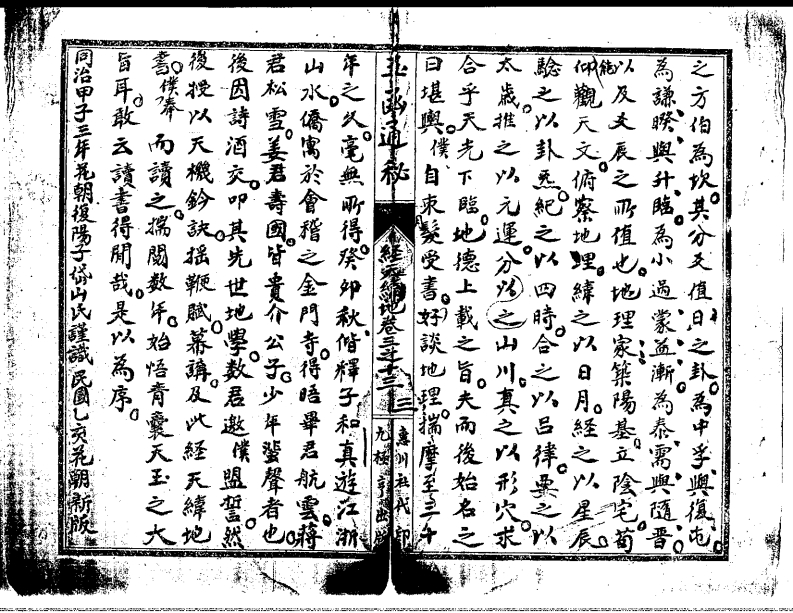 之方伯為坎其分爻值日之卦為中孚與復屯
為謙睽與升臨為小過蒙益漸為泰需與隨晋
以及爻辰之所值也地理家築陽基立陰宅苟能
仰觀天文俯察地理緯之以日月經之以星辰
驗之以卦炁紀之以四時合之以呂律乗之以
太歲推之以元運分以之山川真之以形穴求
合乎天光下臨地德上載之旨夫而後始名之
曰堪輿僕自束髮受書好談地理揣摩至三十
玉函通秘
經天緯地卷三之十三
三
惠川社代印
九極亨出版
年之久毫無所得癸卯秋偕釋子和真遊江浙
山水僑寓於會稽之金門寺得晤畢君航雲蔣
君松雪姜君壽國皆貴介公子少年蜚聲者也
後因詩酒交叩其先世地學数君邀僕盟誓然
後授以天機鈐訣摇鞭賦幕講及此経天緯地
書僕奉而讀之揣閱数年始悟青囊天玉之大
旨耳敢云讀書得閒哉是以為序
同治甲子三年花朝復陽子岱山氏謹識民國乙亥花朝新版